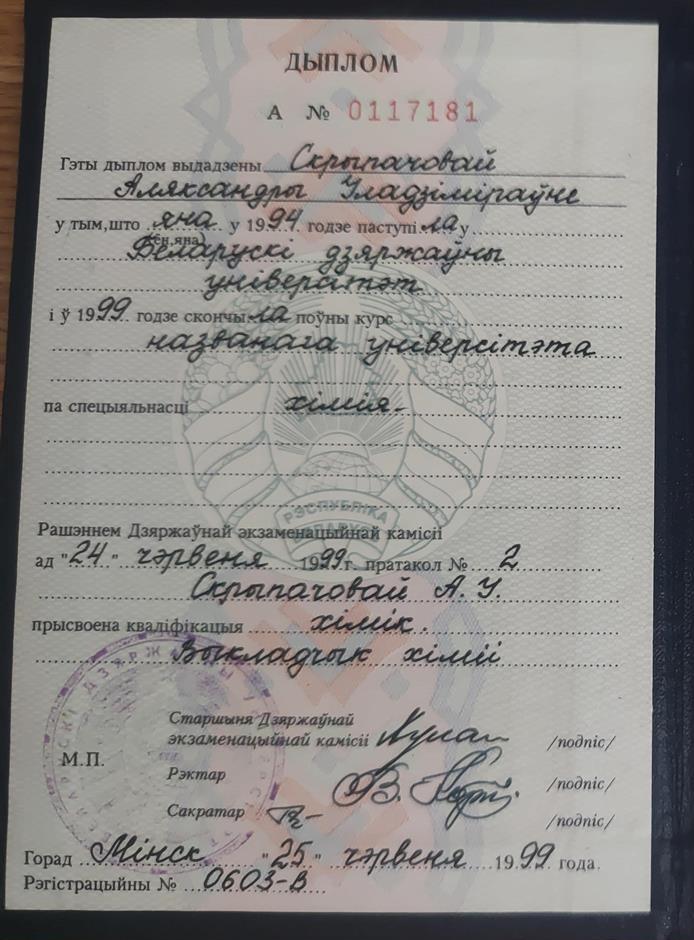 ДЫПЛОМ
А № 0117181
Гэты дыплом выдадзены Скрыпачовай
Аляксандры Уладзіміраўне
у тым,што яна у 1994 годзе паступіла у
(ён,яна)
Беларускі дзяржаўны
універсітэт
і ў 1999 годзе скончыла поўны курс
названага універсітэта
па спецыяльнасці хімія.
РЭСПУБЛІКА
БЕЛАРУСЬ
Рашэннем Дзяржаўнай экзаменацыйнай камісіі
ад "24" чэрвеня 1999г. пратакол № 2
Скрыпачовай А. У.
прысвоена кваліфікацыя хімік.
Выкладчык хіміі
Старшыня Дзяржаўнай
экзаменацыйнай камісіі /подпіс/
М.П.
Рэктар /подпіс/
Сакратар /подпіс/
Горад Мінск "25" чэрвеня 1999 года.
Рэгістрацыйны № 0603-В